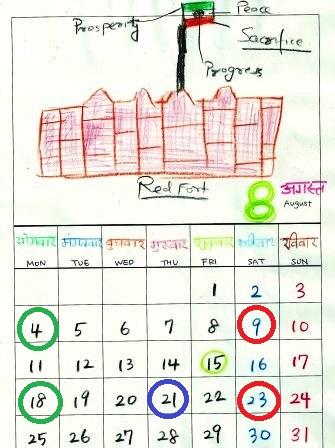 Prosperity Peace
Sacrifice
Progress
Red Fort
8 अगस्त
August
सोमवार मंगलवार बुधवार गुरुवार शुक्रवार शनिवार रविवार
MON TUE WED THU FRI SAT SUN
1 2 3
4 5 6 7 8 9 10
11 12 13 14 15 16 17
18 19 20 21 22 23 24
25 26 27 28 29 30 31